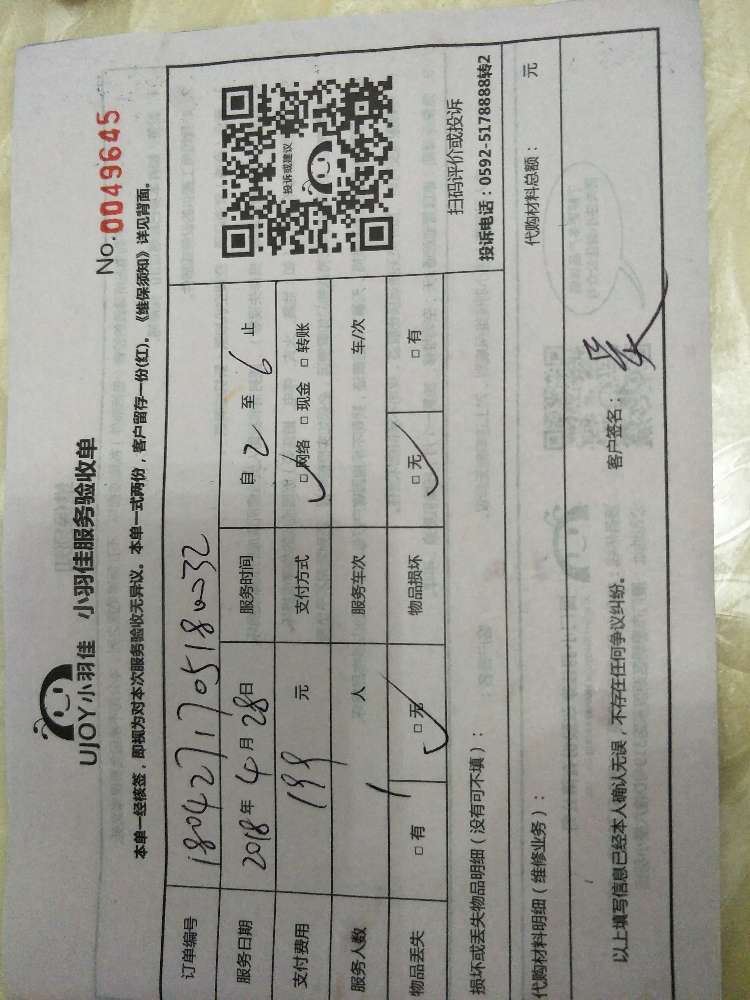 UJOY小羽佳 小羽佳服务验收单
No.0049645
本单一经核签，即视为对本次服务验收无异议。本单一式两份，客户留存一份(红)。《维保须知》详见背面。
订单编号 1804271705180032
服务日期 2018年4月28日 服务时间 自2至6止
支付费用 199元 支付方式 □网络 □现金 □转账
服务人数 1人 服务车次 车/次
物品丢失 □有 □无 物品损坏 □无 □有
投诉或建议
扫码评价或投诉
投诉电话：0592-5178888转2
损坏或丢失物品明细（没有可不填）：
代购材料明细（维修业务）： 代购材料总额： 元
以上填写信息已经本人确认无误，不存在任何争议纠纷。 客户签名：